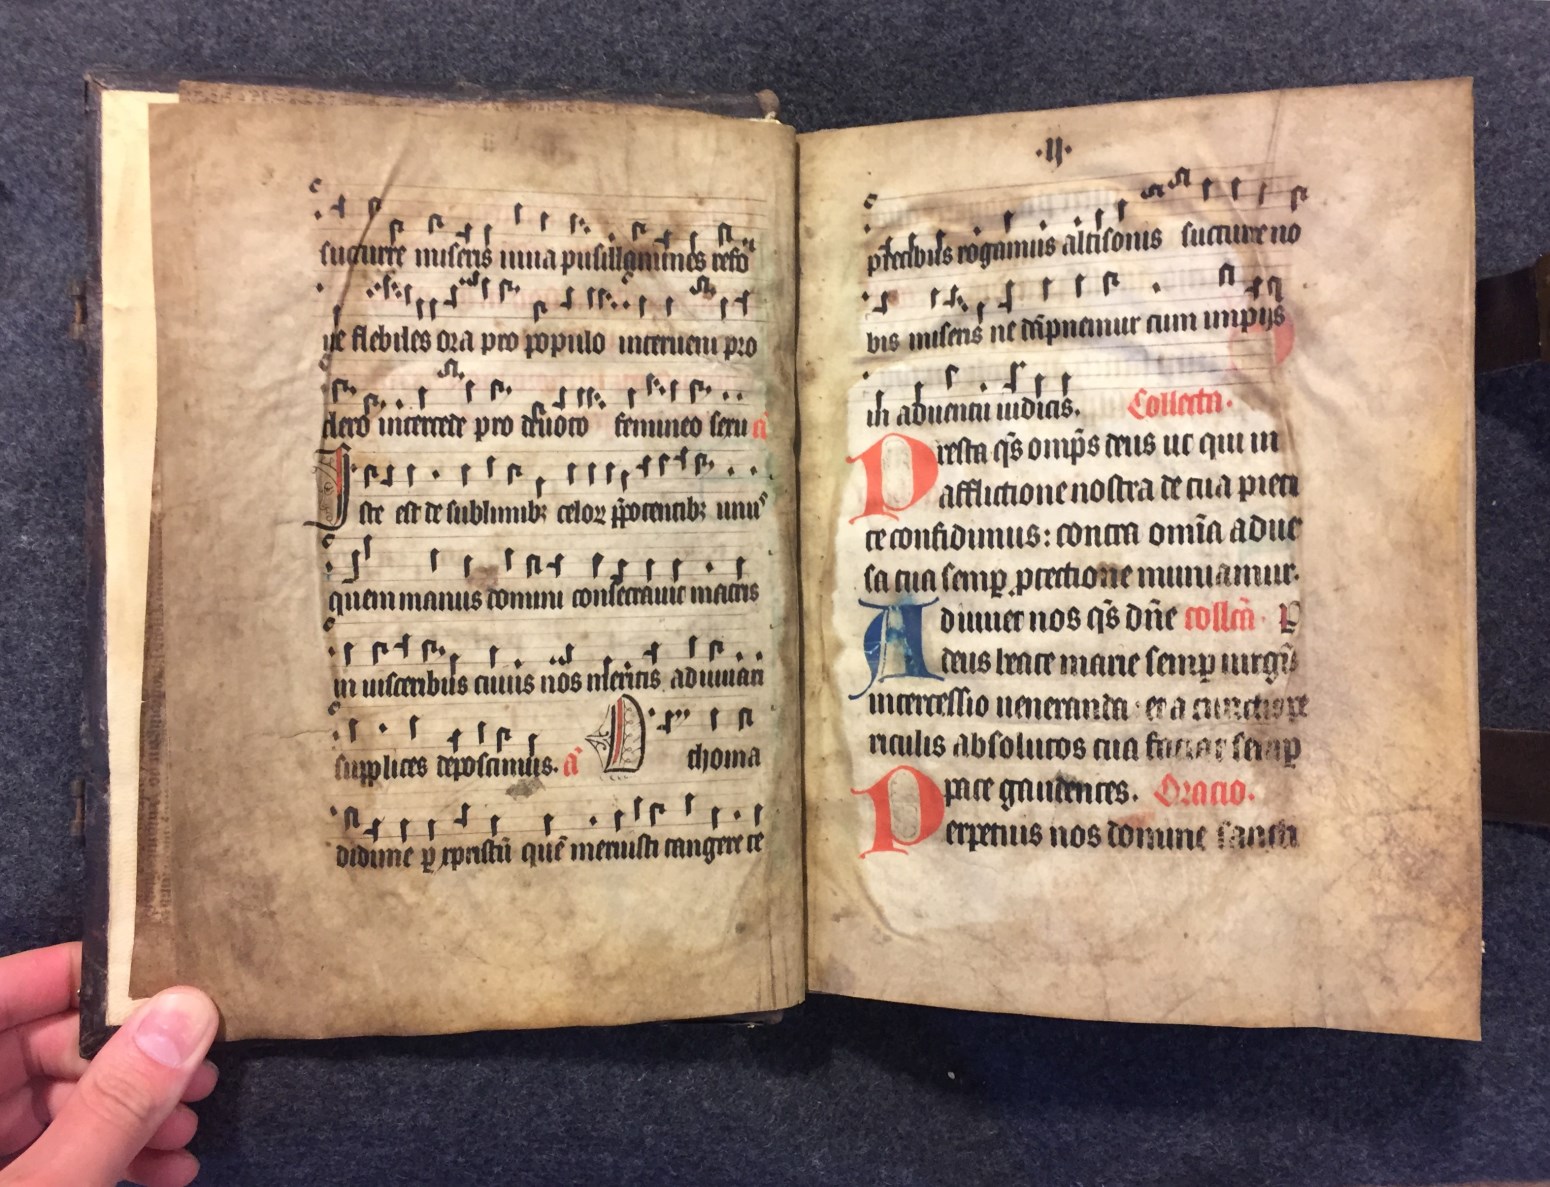 succurre miseris iuua pusillanimes refo
ue flebiles ora pro populo interueni pro
clero intercede pro deuoto femineo sexu a͞
Iste est de sublimibꝫ celoꝝ p̄potentibꝫ unus
quem manus domini consecrauit matris
in uisceribus cuius nos meritis adiuuari
supplices deposcimus. a͞ O thoma
didime ꝑ xpristū quē meruisti tangere te
·ij·
precibus rogamus altisonis succurre no
bis miseris ne dāpnemur cum impijs
in aduentu iudicis. Collecta·
Presta q̄s omp̄s deus ut qui in
afflictione nostra de tua pieta
te confidimus: contra omīa aduer
sa tua semꝑ ꝓtectione muniamur.
Adiuuet nos q̄s dn̄e collcā· P
deus beate marie semꝑ uirgīs
intercessio ueneranda· et a cunctis pe
riculis absolutos tua faciat semꝑ
pace gaudentes. Oracio.
Perpetuis nos domine sancti